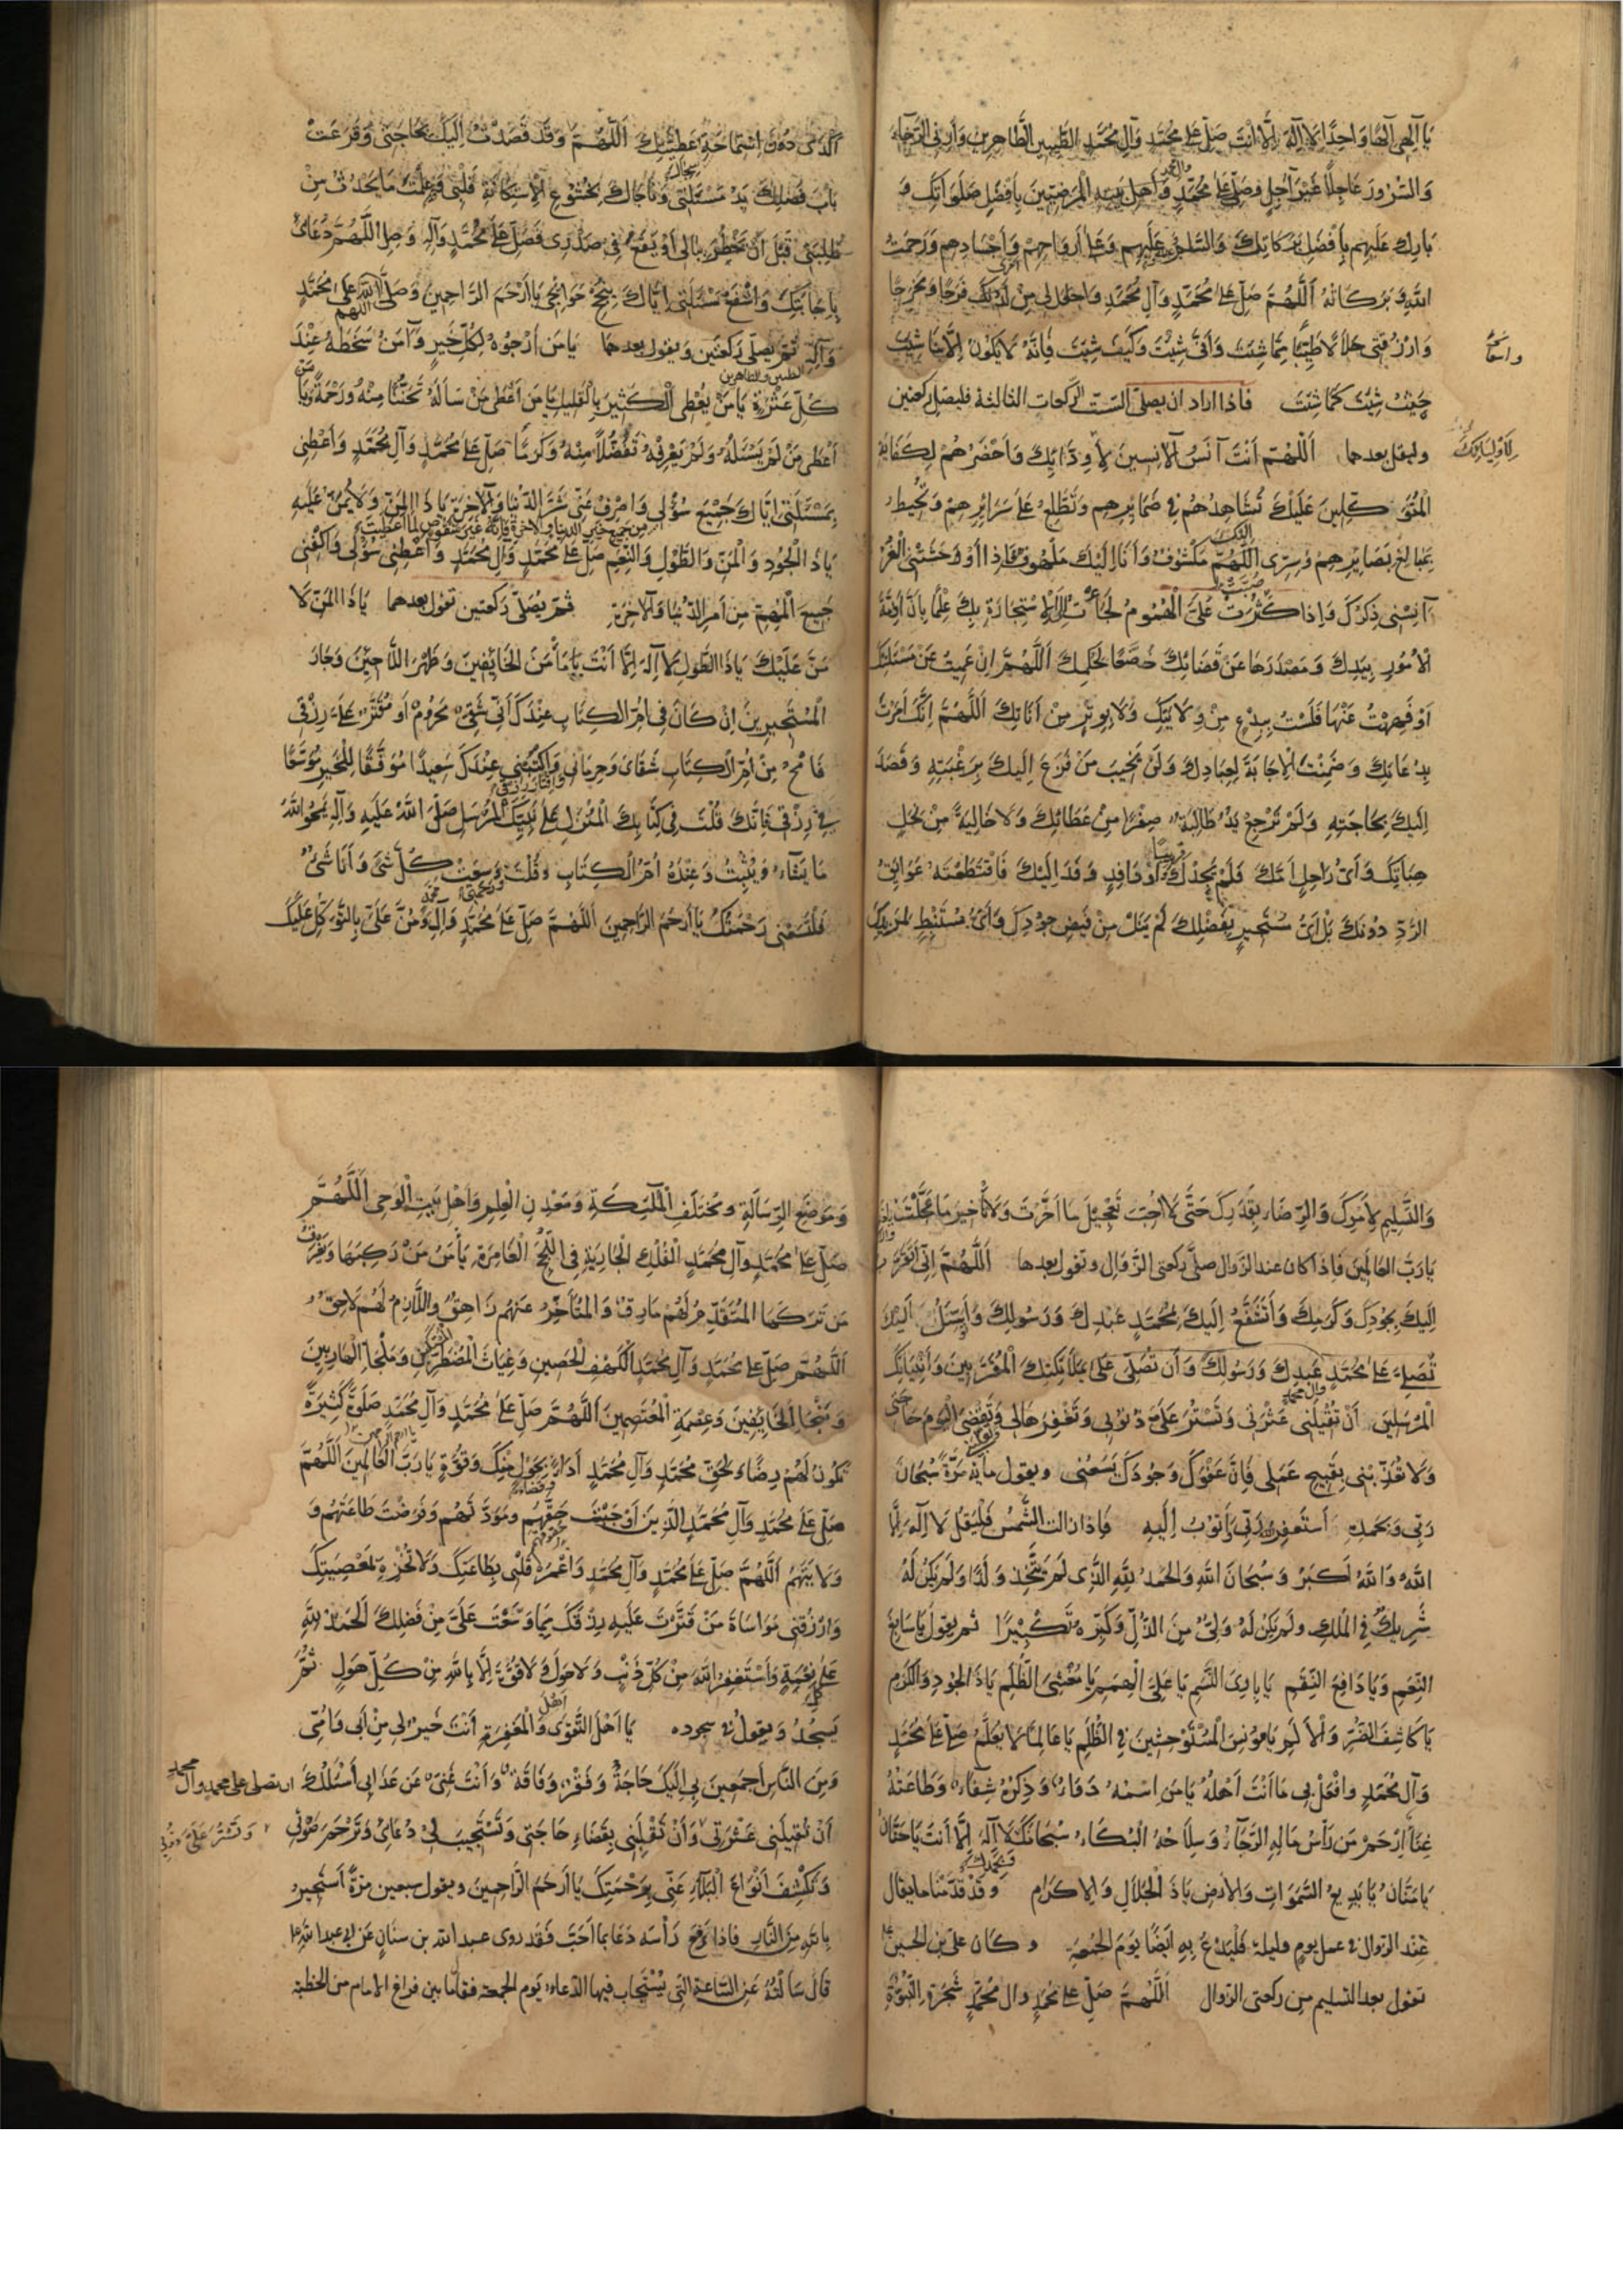 يا إلهي إلها واحدا لا إله إلا أنت صل على محمد وآل محمد الطيبين الطاهرين وأرني الرخاء
والسرور عاجلا غير آجل وصل على محمد وأهل بيته المرضيين بأفضل صلواتك و
بارك عليهم بأفضل بركاتك والسلم عليهم وعلى أرواحهم وأجسادهم ورحمت
الله وبركاته اللهم صل على محمد وآل محمد واجعل لي من لدنك فرجا ومخرجا
وارزقني حلالا طيبا مما شئت وأنى شئت وكيف شئت فإنه لا يكون إلا ما شئت
واسعا
حيث شئت كما شئت فاذا اراد ان يصلي الست الركعات الثالثة فليصل ركعتين
وليقل بعدهما اللهم أنت آنس الآنسين لأودائك وأحضرهم لكفاية
لأوليائك
المتوكلين عليك تشاهدهم في ضمايرهم وتطلع على سرايرهم وتحيط
بمبالغ بصايرهم وسري اللهم مكشوف وأنا إليك ملهوف فإذا أوحشتني الغر
آنسني ذكرك وإذا كثرت علي الهموم لجأت إلى الإستجارة بك علما بأن أزمة
الأمور بيدك ومصدرها عن قضائك خضعا لحكمك اللهم إن عميت عن مسئلتك
أو فههت عنها فلست ببدع من ولايتك ولا بوتر من أناتك اللهم إنك أمرت
بدعائك وضمنت الإجابة لعبادك ولن يخيب من فزع إليك برغبته وقصد
إليك بحاجته ولم ترجع يد طالبة صفرا من عطائك ولا خالية من نحل
هباتك وأي راحل أمك فلم يجدك أو وافد وفد إليك فاقتطعته عوائق
قريبا
الرد دونك بل أي مستجير بفضلك لم ينل من فيض جودك وأي مستنبط لمزيدك
أكدى دون استماحة عطيتك اللهم وقد قصدت إليك بحاجتي وقرعت
باب فضلك يد مسئلتي وناجاك بخشوع الإستكانة قلبي وعلمت ما يحدث من
طلبتي قبل أن يخطر ببالي أو يقع في صدري فصل على محمد وآله وصل اللهم دعائي
بإجابتك واشفع مسئلتي إياك بنجح حوائجي يا أرحم الراحمين وصلى الله على محمد
وآله ثم يصلي ركعتين ويقول بعدهما يا من أرجوه لكل خير وآمن سخطه عند
كل عثرة يا من يعطي الكثير بالقليل يا من أعطى من سأله تحننا منه ورحمة يا
أعطى من لم يسئله ولم يعرفه تفضلا منه وكرما صل على محمد وآل محمد وأعطني
بمسئلتي إياك جميع سؤلي واصرف عني شر الدنيا والآخرة يا ذا المن ولا يمن عليه
يا ذا الجود والمن والطول والنعم صل على محمد وآل محمد وأعطني سؤلي واكفني
جميع المهم من أمر الدنيا والآخرة ثم يصلي ركعتين تقول بعدهما يا ذا المن لا
من عليك يا ذا الطول لا إله إلا أنت يا مأمن الخايفين وظهر اللاجين وجار
المستجيرين إن كان في أم الكتاب عندك أني شقي محروم أو مقتر علي رزقي
فامح من أم الكتاب شقائي وحرماني واكتبني عندك سعيدا موفقا للخير موسعا
في رزقي فإنك قلت في كتابك المنزل على نبيك المرسل صلى الله عليه وآله يمحو الله
ما يشاء ويثبت وعنده أم الكتاب وقلت وسعت كل شئ وأنا شئ
فلتسعني رحمتك يا أرحم الراحمين اللهم صل على محمد وآله ومن علي بالتوكل عليك
والتسليم لأمرك والرضاء بقدرك حتى لا أحب تعجيل ما أخرت ولا تأخير ما عجلت
يا رب العالمين فإذا كان عند الزوال صلى ركعتي الزوال وتقول بعدها اللهم إني أتقرب
إليك بجودك وكرمك وأتشفع إليك بمحمد عبدك ورسولك
تصلي على محمد عبدك ورسولك وأن تصلي على ملائكتك المقربين وأنبيائك
المرسلين أن تقيلني عثرتي وتستر علي ذنوبي وتغفرها لي وتقضي اليوم حاجتي
ولا تعذبني بقبيح عملي فإن عفوك وجودك يسعني ويقول مأية مرة سبحان
ربي وبحمده أستغفر الله ربي وأتوب إليه فإذا زالت الشمس فليقل لا إله إلا
الله والله أكبر وسبحان الله والحمد لله الذي لم يتخذ ولدا ولم يكن له
شريك في الملك ولم يكن له ولي من الذل وكبره تكبيرا ثم يقول يا سابغ
النعم ويا دافع النقم يا بارئ النسم يا علي الهمم يا مغشي الظلم يا ذا الجود والكرم
يا كاشف الضر والألم يا مونس المستوحشين في الظلم يا عالما لا يعلم صل على محمد
وآل محمد وافعل بي ما أنت أهله يا من اسمه دواء وذكره شفاء وطاعته
غناء ارحم من رأس ماله الرجاء وسلاحه البكاء سبحانك لا إله إلا أنت يا حنان
يا منان يا بديع السموات والأرض يا ذا الجلال والإكرام وقد قدمنا ما يقال
عند الزوال في عمل يوم وليلة فليدع به ايضا يوم الجمعة وكان علي بن الحسين
تقول بعد التسليم من ركعتي الزوال اللهم صل على محمد وال محمد شجرة النبوة
وموضع الرسالة ومختلف الملئكة ومعدن العلم وأهل بيت الوحي اللهم
صل على محمد وآل محمد الفلك الجارية في اللجج الغامرة يأمن من ركبها ويغرق
من تركها المتقدم لهم مارق والمتأخر عنهم زاهق واللازم لهم لاحق
اللهم صل على محمد وآل محمد الكهف الحصين وغياث المضطرين وملجإ الهاربين
ومنجا الخايفين وعصمة المعتصمين اللهم صل على محمد وآل محمد صلوة كثيرة
تكون لهم رضاء ولحق محمد وآل محمد أداء بحول منك وقوة يا رب العالمين اللهم
صل على محمد وآل محمد الذين أوجبت حقهم ومودتهم وفرضت طاعتهم و
ولايتهم اللهم صل على محمد وآل محمد واعمر قلبي بطاعتك ولا تخزه بمعصيتك
وارزقني مواساة من قترت عليه رزقك بما وسعت علي من فضلك الحمد لله
على نعمة وأستغفر الله من كل ذنب ولا حول ولا قوة إلا بالله من كل هول ثم
يسجد ويقول في سجوده يا أهل التقوى والمغفرة أنت خير لي من أبي وأمي
ومن الناس أجمعين بي إليك حاجة وفقر وفاقة وأنت غني عن عذابي أسئلك ان تصلي على محمد وآل محمد
أن تقيلني عثرتي وأن تقلبني بقضاء حاجتي وتستجيب لي دعائي وترحم صوتي
وتستر علي ذنوبي
وتكشف أنواع البلاء عني برحمتك يا أرحم الراحمين ويقول سبعين مرة أستجير
بالله من النار فاذا رفع رأسه دعا بما احب فقد روى عبد الله بن سنان عن ابي عبد الله
قال سألته عن الساعة التي يستجاب فيها الدعاء يوم الجمعة فقال ما بين فراغ الامام من الخطبة